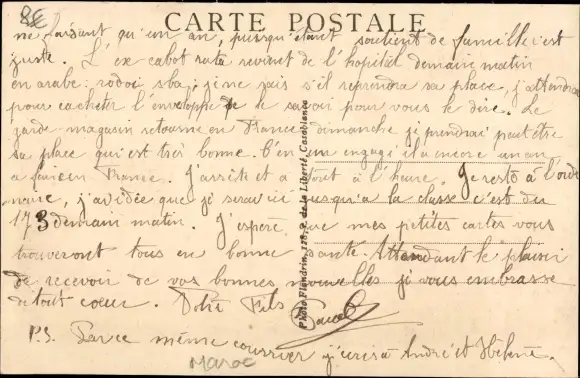 8€
CARTE POSTALE
ne faisant qu'un an, puisqu'étant soutient de famille c'est
juste. L'ex cabot rata revient de l'hopital demain matin
en arabe: sba, je ne sais s'il reprendra sa place, j'attendrai
pour cacheter l'enveloppe de le savoir pour vous le dire. Le
garde magasin retourne en France dimanche je prendrai peut être
sa place qui est très bonne. C'en un engagé il a encore un an
a faire en France. J'arrête et a tout à l'heure. Je reste à l'ordi
naire, j'ai idée que je serai ici jusqu'a la classe c'est du
173 demain matin. J'espère que mes petites cartes vous
trouveront tous en bonne santé. Attendant le plaisir
de recevoir de vos bonnes nouvelles je vous embrasse
de tout coeur. Votre Fils
P.S. Par ce même courrier j'écris à André et Hélène.
Maroc
Photo Flandrin, 128, r. de la Liberté, Casablanca